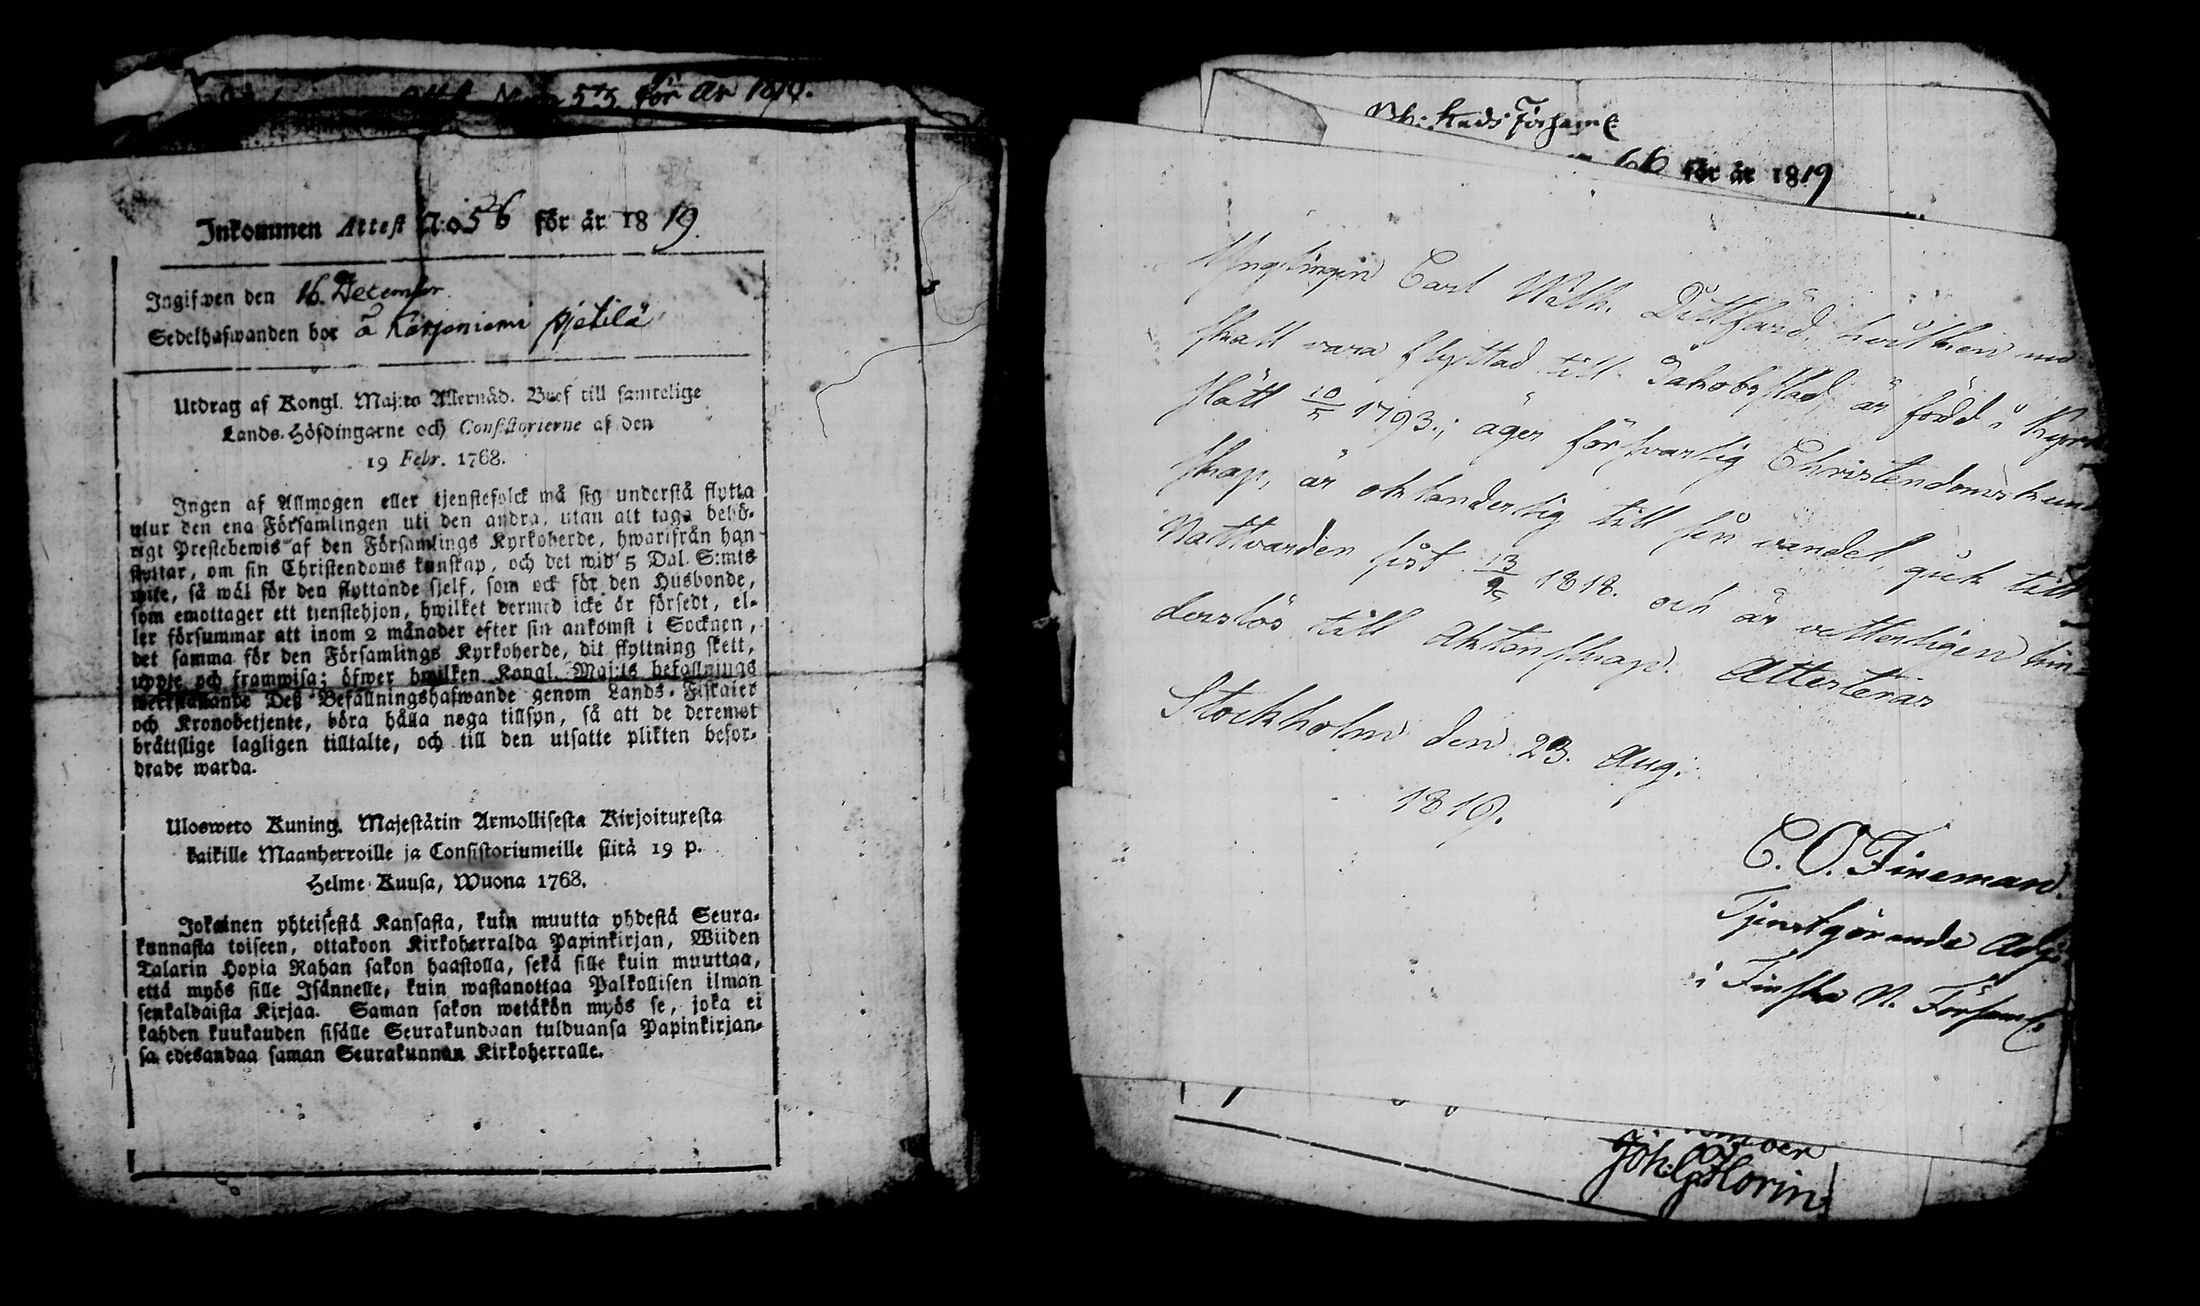 för år 1819.
Inkommen Attest N:o 56 för år 1819.
Ingifwen den 16 December
Sedelhafwanden bor å Karjeniemi Pjetilä
Utdrag af Kongl. Maj:ts Allernåd. Bref till samtelige
Lands-Höfdingarne och Consistorierne af den
19 Febr. 1768.
Ingen af Allmogen eller tjenstefolck må sig understå flytta
utur den ena Församlingen uti den andra, utan att taga behö-
rigt Prestebewis af den Församlings Kyrkoherde, hwarifrån han
flyttar, om sin Christendoms kunskap, och det wid 5 Dal. S:mts
wite, så wäl för den flyttande sjelf, som ock för den Husbonde,
som emottager ett tjenstehjon, hwilket dermed icke är försedt, el-
ler försummar att inom 2 månader efter sin ankomst i Socknen,
det samma för den Församlings Kyrkoherde, dit flyttning skett,
uppte och framwisa; öfwer hwilken Kongl. Maj:ts befallnings
werkställande Deß Befallningshafwande genom Lands-Fiskaler
och Kronobetjente, böra hålla noga tillsyn, så att de deremot
bråttslige lagligen tilltalte, och till den utsatte plikten befor-
drade warda.
Ulosweto Kuning. Majestätin Armollisesta Kirjoituxesta
kaikille Maanherroille ja Consistoriumeille siitä 19 p.
Helme-Kuusa, Wuona 1768.
Jokainen yhteisestä Kansasta, kuin muutta yhdestä Seura-
kunnasta toiseen, ottakoon Kirkoherralda Papinkirjan, Wiiden
Talarin Hopia Rahan sakon haastolla, sekä sille kuin muuttaa,
että myös sille Isännelle, kuin wastanottaa Palkollisen ilman
senkaldaista Kirjaa. Saman sakon wetäkön myös se, joka ei
kahden kuukauden sisälle Seurakundaan tulduansa Papinkirjan-
sa edesandaa saman Seurakunnan Kirkoherralle.
Församl:
66 för år 1819
Ynglingen Carl Wilh. Dittfard, hvilken nu
skall vara flyttad till Jakobsstad, är född i Kyrk
slätt 10/5 1793.; äger försvarlig Christendomskun
skap, är oklanderlig till sin vandel, gick till
Nattvarden sist 13/9 1818. och är vetterligen hin-
derslös till Äktenskap. Attesteras
Stockholm den 23. Aug:
1819.
C. O. Fineman.
Tjenstgörande Adj:
i Finska N. Församl:
Joh: G: Florin